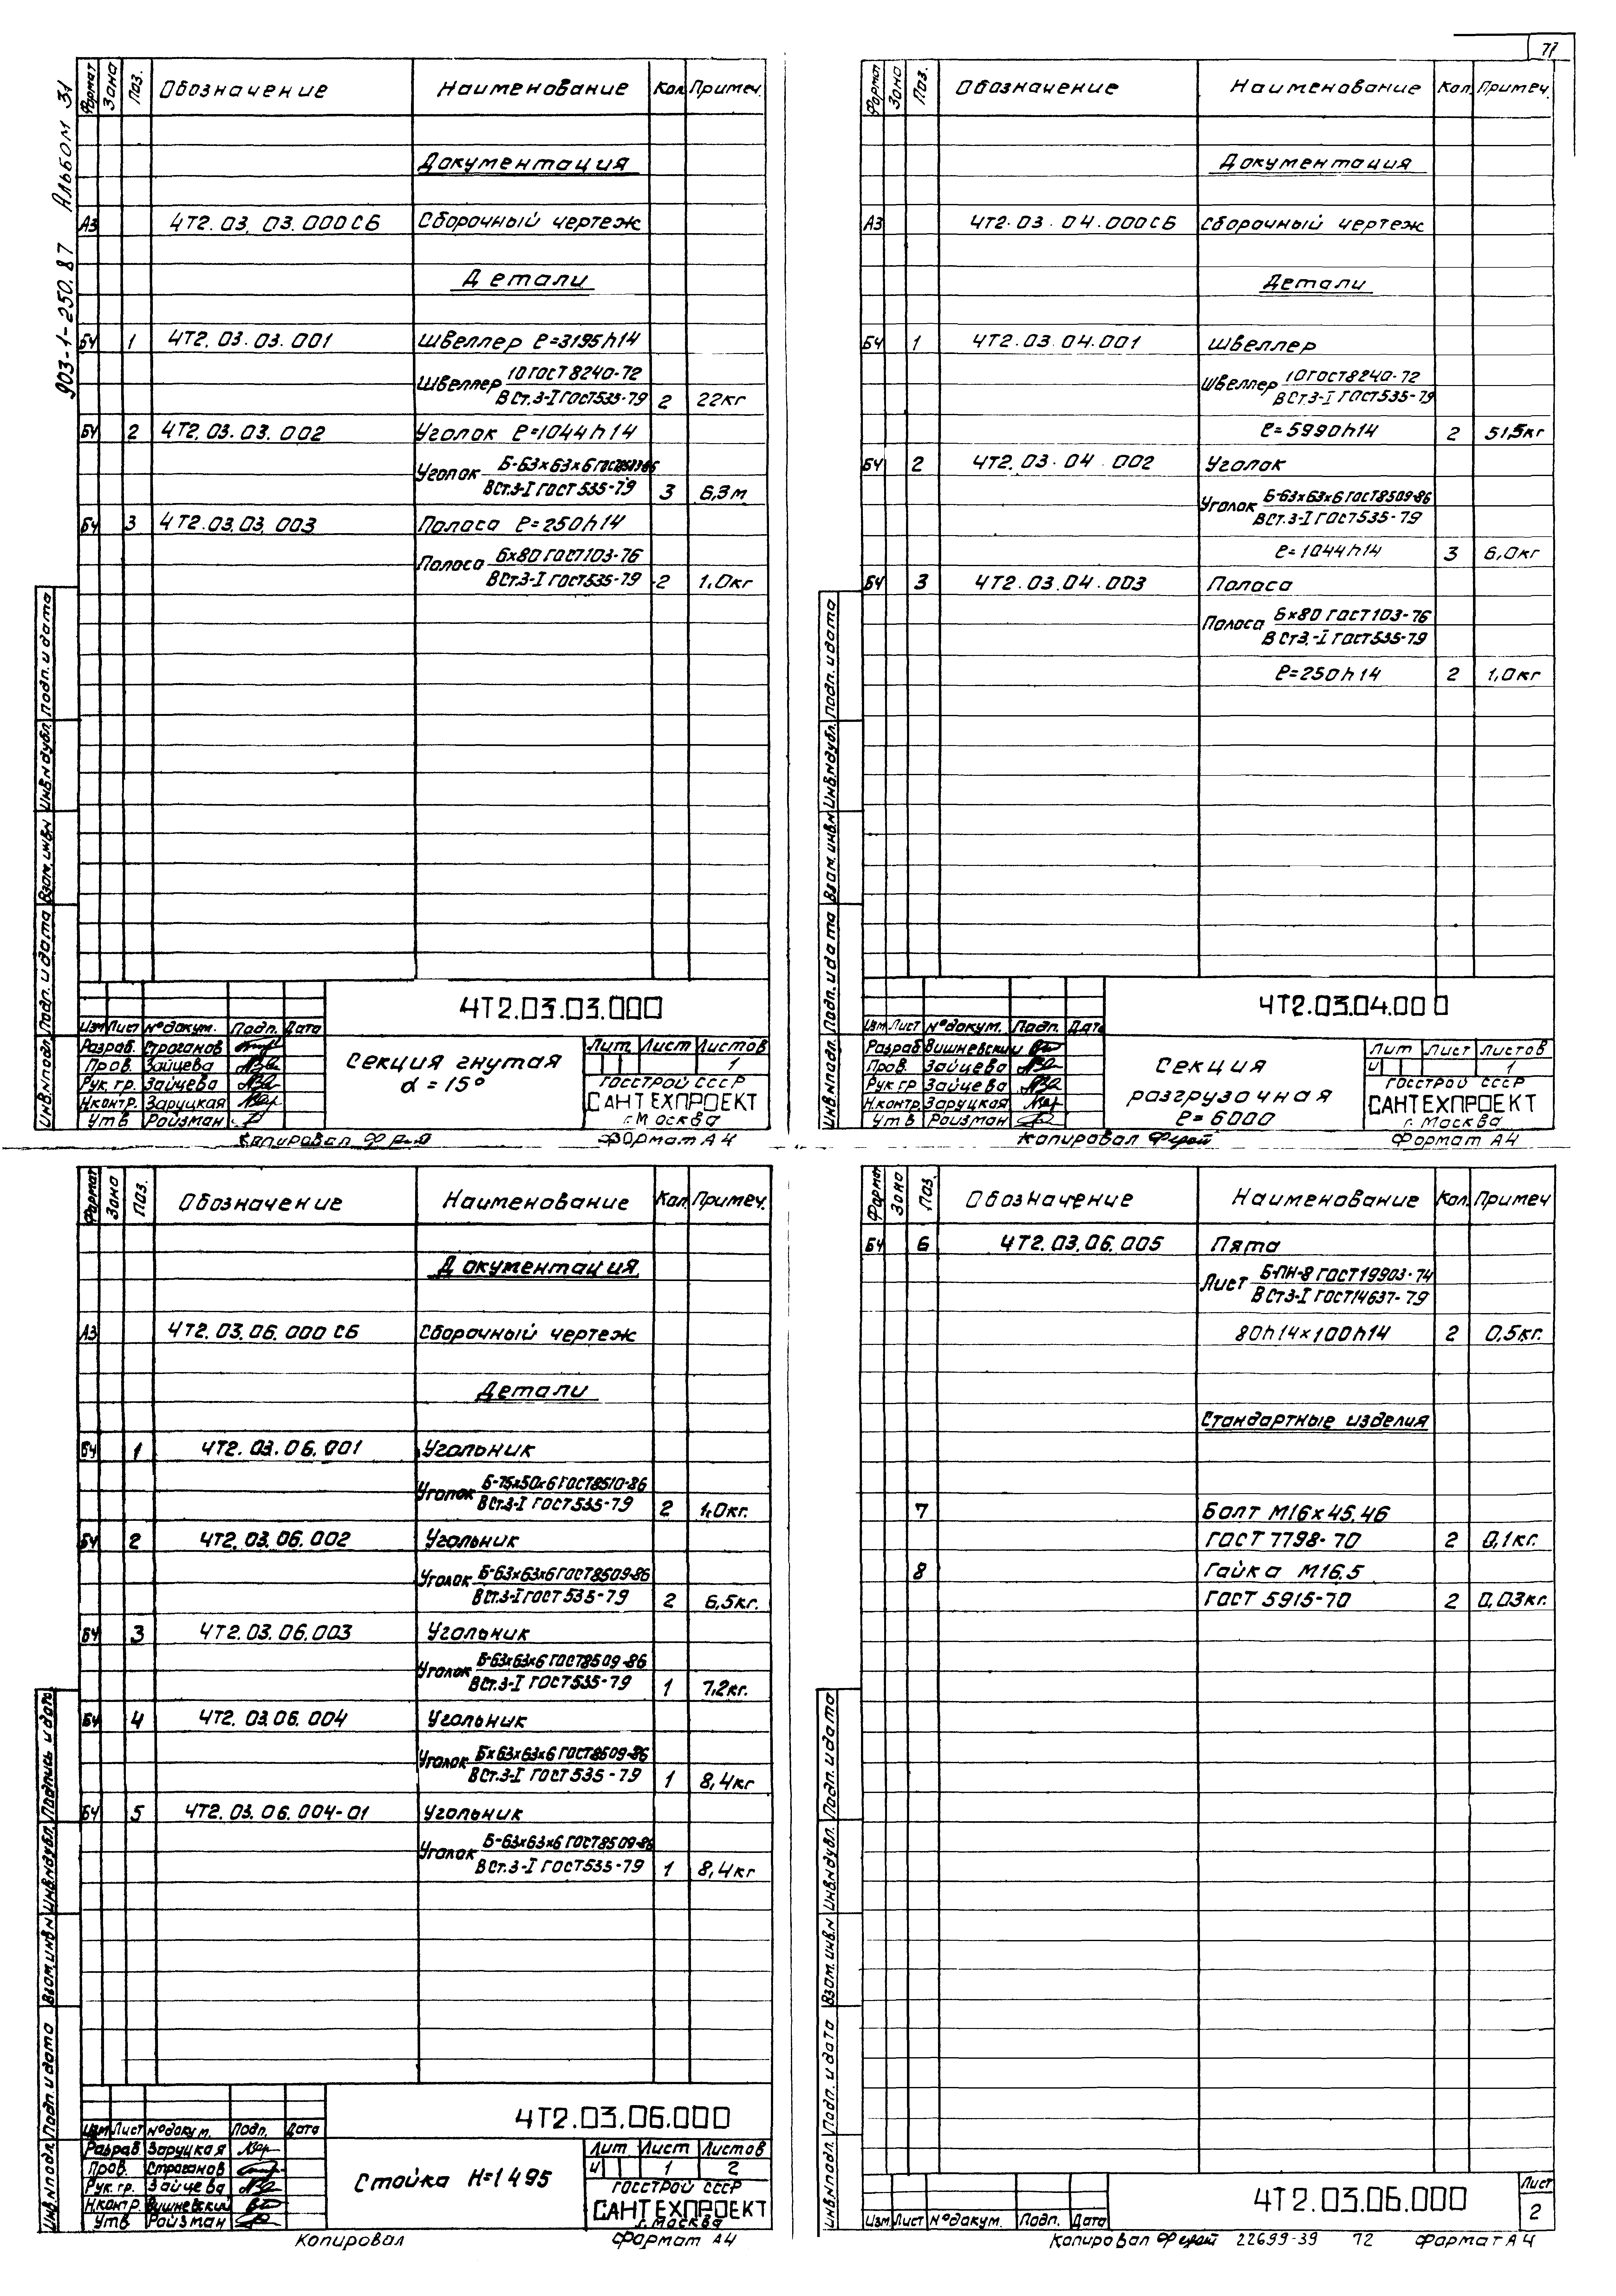 71
903-1-250.87 Альбом 31
Формат Зона Поз. Обозначение Наименование Кол. Примеч.
Документация
А3 4Т2.03.03.000СБ Сборочный чертеж
Детали
БЧ 1 4Т2.03.03.001 Швеллер ℓ=3195h14
Швеллер 10 ГОСТ 8240-72
ВСт.3-I ГОСТ 535-79 2 22кг
БЧ 2 4Т2.03.03.002 Уголок ℓ=1044h14
Уголок Б-63х63х6 ГОСТ 8509-86
ВСт.3-I ГОСТ 535-79 3 6,3м
БЧ 3 4Т2.03.03.003 Полоса ℓ=250h14
Полоса 6х80 ГОСТ 103-76
ВСт.3-I ГОСТ 535-79 2 1,0кг
Инв.№подл. Подп. и дата Взам.инв.№ Инв.№дубл. Подп. и дата
4Т2.03.03.000
Изм Лист №докум. Подп. Дата
Разраб. Строганов
Пров. Зайцева
Рук.гр. Зайцева
Н.контр. Заруцкая
Утв Ройзман
Секция гнутая
α = 15°
Лит. Лист Листов
1
ГОССТРОЙ СССР
САНТЕХПРОЕКТ
г.Москва
Копировал
Формат А4
Формат Зона Поз. Обозначение Наименование Кол. Примеч.
Документация
А3 4Т2.03.04.000СБ Сборочный чертеж
Детали
БЧ 1 4Т2.03.04.001 Швеллер
Швеллер 10 ГОСТ 8240-72
ВСт3-I ГОСТ 535-79
ℓ=5990h14 2 51,5кг
БЧ 2 4Т2.03.04.002 Уголок
Уголок Б-63х63х6 ГОСТ 8509-86
ВСт.3-I ГОСТ 535-79
ℓ=1044h14 3 6,0кг
БЧ 3 4Т2.03.04.003 Полоса
Полоса 6х80 ГОСТ 103-76
ВСт3.-I ГОСТ 535-79
ℓ=250h14 2 1,0кг
Инв.№подл. Подп. и дата Взам.инв.№ Инв.№дубл. Подп. и дата
4Т2.03.04.000
Изм Лист №докум. Подп. Дата
Разраб Вишневский
Пров. Зайцева
Рук.гр Зайцева
Н.контр. Заруцкая
Утв Ройзман
Секция
разгрузочная
ℓ=6000
Лит Лист Листов
И 1
ГОССТРОЙ СССР
САНТЕХПРОЕКТ
г. Москва
Копировал
Формат А4
Формат Зона Поз. Обозначение Наименование Кол. Примеч.
Документация
А3 4Т2.03.06.000 СБ Сборочный чертеж
Детали
БЧ 1 4Т2.03.06.001 Угольник
Уголок Б-75х50х6 ГОСТ 8510-86
ВСт.3-I ГОСТ 535-79 2 1,0кг.
БЧ 2 4Т2.03.06.002 Угольник
Уголок Б-63х63х6 ГОСТ 8509-86
ВСт.3-I ГОСТ 535-79 2 6,5кг.
БЧ 3 4Т2.03.06.003 Угольник
Уголок Б-63х63х6 ГОСТ 8509-86
ВСт.3-I ГОСТ 535-79 1 7,2кг.
БЧ 4 4Т2.03.06.004 Угольник
Уголок Бх63х63х6 ГОСТ 8509-86
ВСт.3-I ГОСТ 535-79 1 8,4кг
БЧ 5 4Т2.03.06.004-01 Угольник
Уголок Б-63х63х6 ГОСТ 8509-86
ВСт.3-I ГОСТ 535-79 1 8,4кг
Инв.№подл. Подп. и дата Взам.инв.№ Инв.№дубл. Подпись и дата
4Т2.03.06.000
Изм Лист №докум. Подп. Дата
Разраб Заруцкая
Пров. Строганов
Рук.гр. Зайцева
Н.контр. Вишневский
Утв Ройзман
Стойка Н=1495
Лит Лист Листов
И 1 2
ГОССТРОЙ СССР
САНТЕХПРОЕКТ
г.Москва
Копировал
Формат А4
Формат Зона Поз. Обозначение Наименование Кол. Примеч
БЧ 6 4Т2.03.06.005 Пята
Лист Б-ПН-8 ГОСТ 19903-74
ВСт3-I ГОСТ 14637-79
80h14х100h14 2 0,5кг.
Стандартные изделия
7 Болт М16х45.46
ГОСТ 7798-70 2 0,1кг.
8 Гайка М16.5
ГОСТ 5915-70 2 0,03кг.
Инв.№подл. Подп. и дата Взам.инв.№ Инв.№дубл. Подп. и дата
Изм Лист №докум. Подп. Дата
4Т2.03.06.000
Лист
2
Копировал 22699-39 72 Формат А4